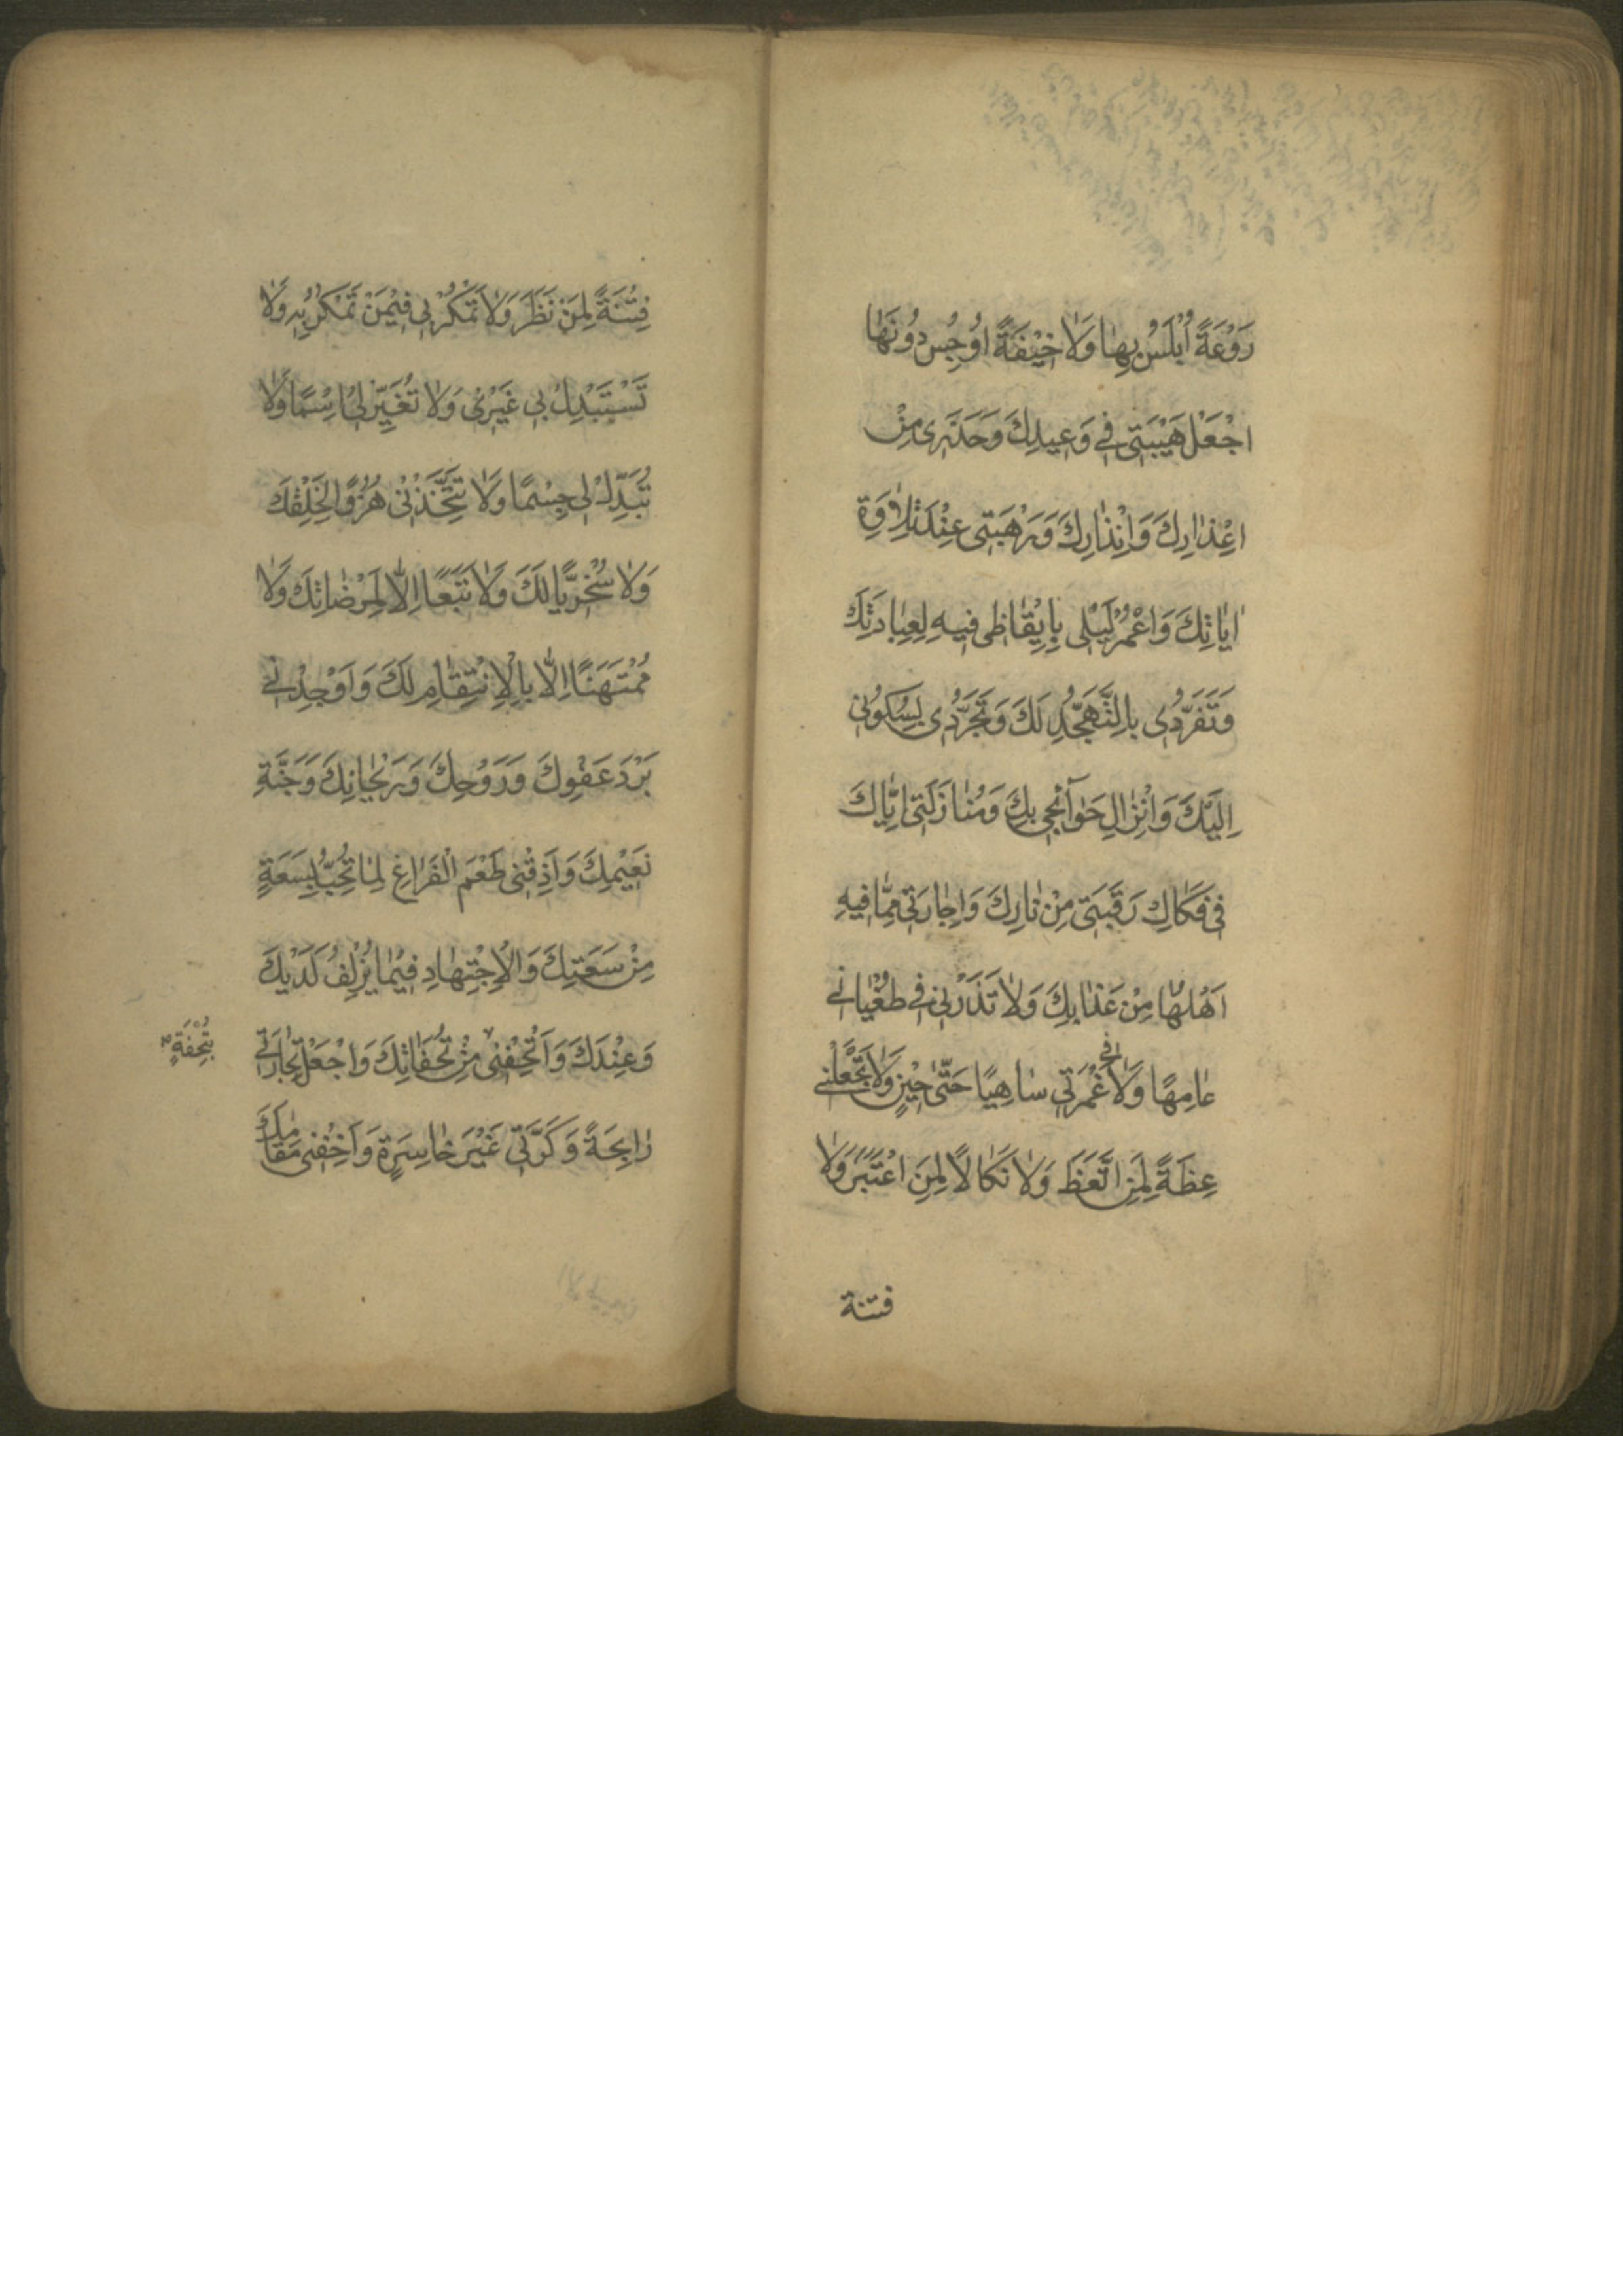 رَوْعَةً اُبْلَسُ بِهٰا وَلاٰ خيْفَةً اوُجِسُ دوُنَهٰا
اجْعَلْ هَيْبَتى في وَعيدِكَ وَحَذَرى مِنْ
اعْذٰارِكَ وَاِنْذٰارِكَ وَرَهْبَتى عِنْدَ تِلاٰوَةِ
اٰيٰاتِكَ وَاعْمُرْ لَيْلى بِايقٰاظى فيهِ لِعِبٰادَتِكَ
وَتَفَرُّدى بِالتَّهَجُّدِ لَكَ وَتَجَرُّدى بِسُكوُنى
اِلَيْكَ وَانْزٰالِ حَوٰآئِجى بِكَ وَمُنٰازَلَتى اِيّٰاكَ
فى فَكٰاكِ رَقَبَتى مِنْ نٰارِكَ وَاِجٰارَتى مِمّٰا فيهِ
اَهْلُهٰا مِنْ عَذٰابِكَ وَلاٰ تَذَرْنى فى طُغْيٰانى
عٰامِهًا وَلاٰ فى غَمْرَتى سٰاهِيًا حَتّٰى حينٍ وَلاٰ تَجْعَلْنى
عِظَةً لِمَنِ اتَّعَظَ وَلاٰ نَكٰالاً لِمَنِ اعْتَبَرَ وَلاٰ
فتنة
فِتْنَةً لِمَنْ نَظَرَ وَلاٰ تَمْكُرْ بى فيمَنْ تَمْكُرُ بِهِ وَلاٰ
تَسْتَبْدِلْ بى غَيْرى وَلاٰ تُغَيِّرْ لى اِسْمًا وَلاٰ
تُبَدِّلْ لى جِسْمًا وَلاٰ تَتَّخِذْنى هُزُوًا لِخَلْقِكَ
وَلاٰ سُخْرِيًّا لَكَ وَلاٰ تَبَعًا اِلاّٰ لِمَرْضٰاتِكَ وَلاٰ
مُمْتَهَنًا اِلاّٰ بِالْاِنْتِقٰامِ لَكَ وَاَوْجِدْنى
بَرْدَ عَفْوِكَ وَرَوْحِكَ وَرَيْحٰانِكَ وَجَنَّةِ
نَعيْمِكَ وَاَذِقْنى طَعْمَ الْفَرٰاغِ لِمٰا تُحِبُّ بِسَعَةٍ
مِنْ سَعَتِكَ وَالْاِجْتِهٰادِ فيمٰا يُزْلِفُ لَدَيْكَ
وَعِنْدَكَ وَاَتْحِفْنى مِنْ تُحَفٰاتِكَ وَاجْعَلْ تِجٰارَتى
بِتُحْفَةٍ
رٰابِحَةً وَكَرَّتى غَيْرَ خٰاسِرَةٍ وَاَخِفْنى مَقٰامَكَ